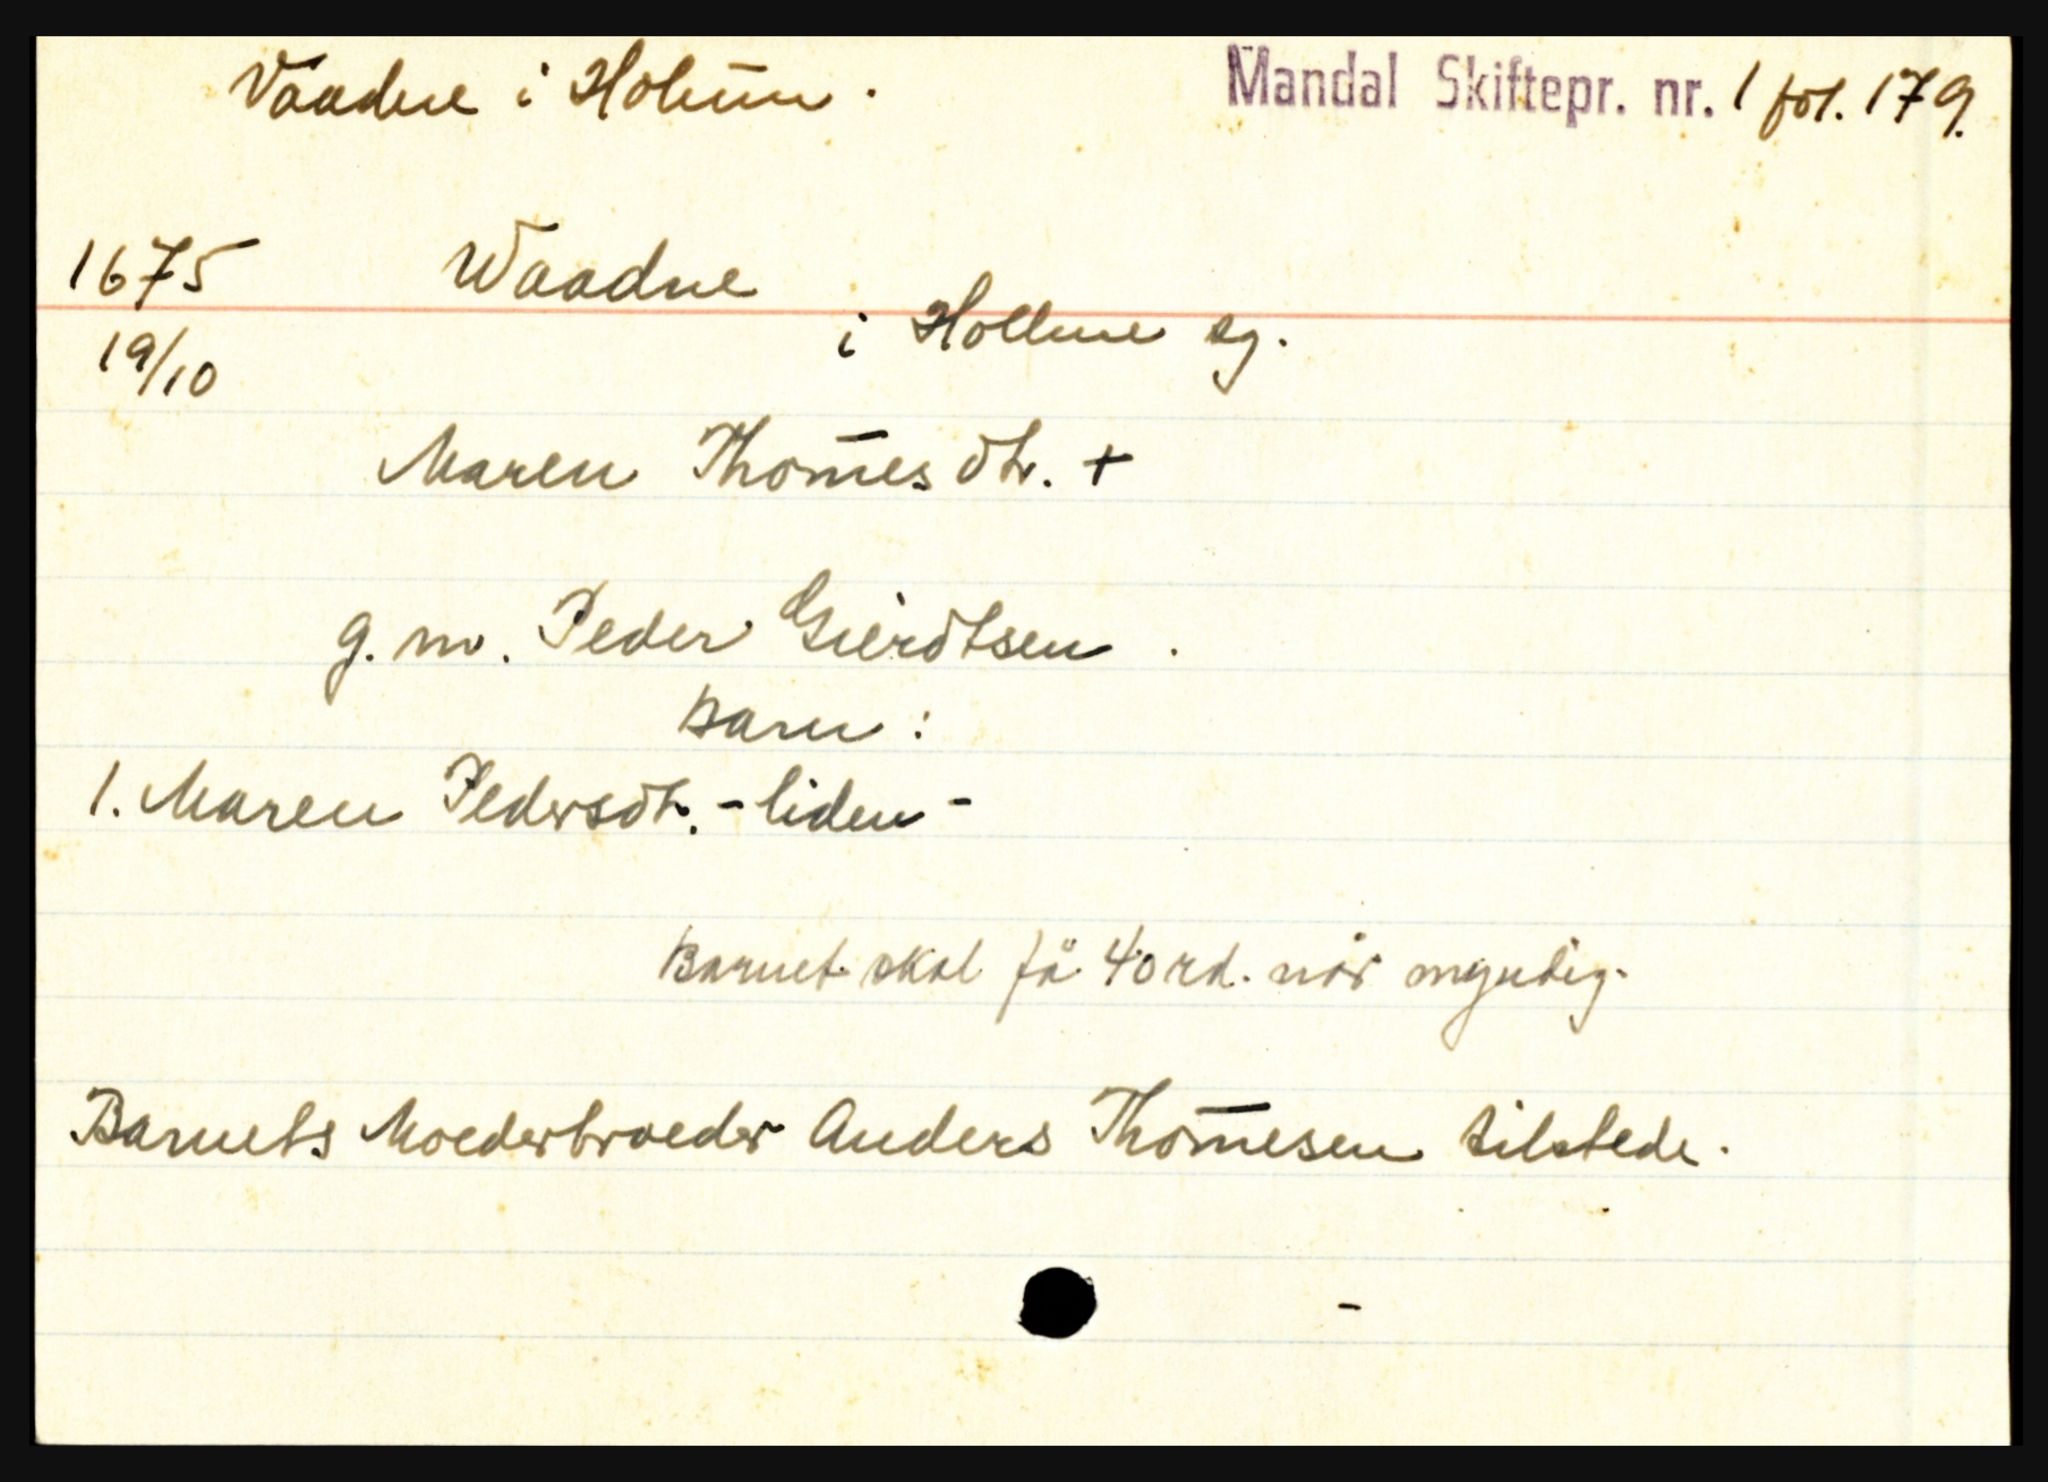 Vaadne i Holum. Mandal Skiftepr. nr. 1 fol. 179.
1675 Waadne
19/10 i Hollme sg.
Maren Thom̄esdtr. +
g. m. Peder Gierdtsen.
Barn:
1. Maren Pedersdtr. - liden -
Barnet skal få 40 rd. når myndig.
Barnets Moederbroeder Anders Thom̄esen tilstede.
-